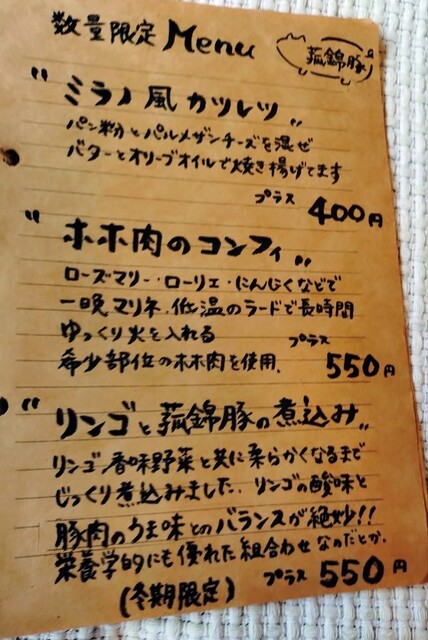 数量限定 Menu
菰錦豚
"ミラノ風カツレツ"
パン粉とパルメザンチーズを混ぜ
バターとオリーブオイルで焼き揚げてます
プラス 400円
"ホホ肉のコンフィ"
ローズマリー・ローリエ・にんにくなどで
一晩マリネ、低温のラードで長時間
ゆっくり火を入れる
希少部位のホホ肉を使用、
プラス 550円
"リンゴと菰錦豚の煮込み"
リンゴ、香味野菜と共に柔らかくなるまで
じっくり煮込みました、リンゴの酸味と
豚肉のうま味とのバランスが絶妙!!
栄養学的にも優れた組合わせなのだとか、
(冬期限定) プラス 550円